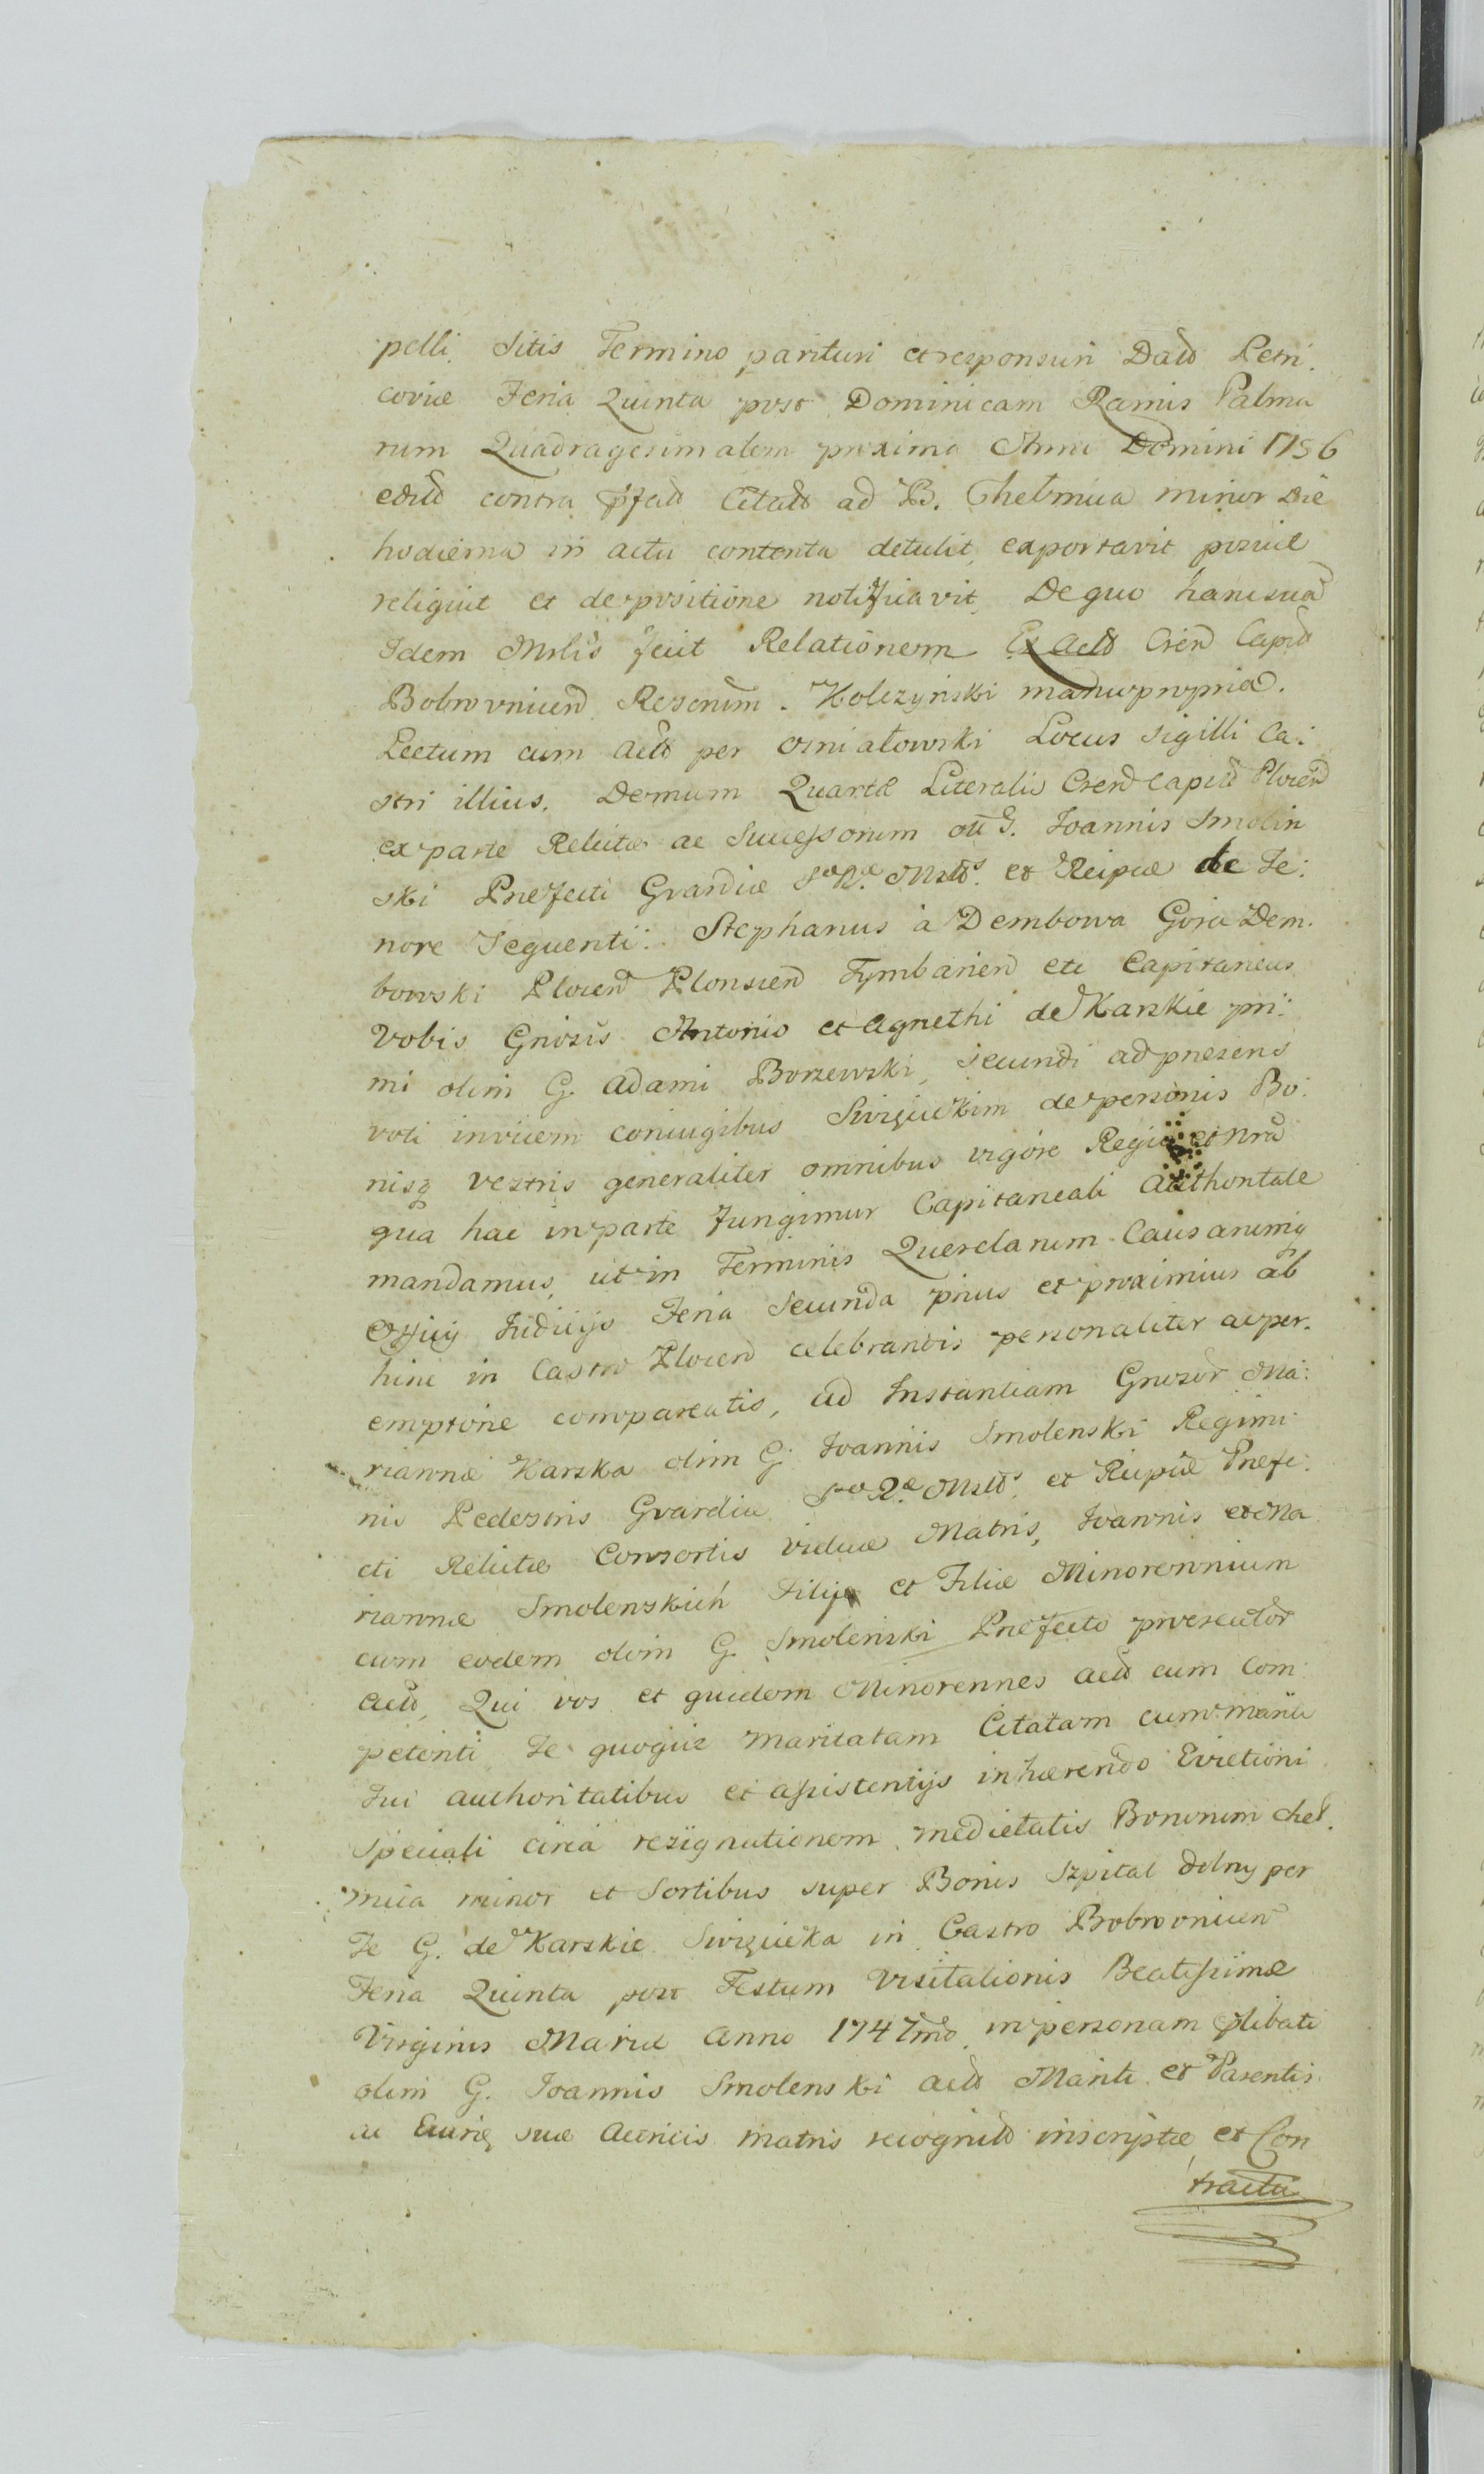 pelli sitis Termino parituri et responsuri Datt Petri.
coviæ Feria Quinta post Dominicam Ramis Palma
rum Quadragesimalem proxima Anni Domini 1756
edit contra pfatt Citatt ad B. Chelmica minor Die
hodierna in actu contenta detulit, exportavit posuit
reliquit et de positione notificavit, De quo hanc suã
Idem Mrlis fecit Relationem Ex Actt Cren Capit
Bobrovnicen Rescriptum. Kolczyński manu propria.
Lectum cum Actt per Osniałowski Locus Sigilli Ca:
stri illius. Demum Quartæ Literalis Cren Capitt Plocen
ex parte Relictæ ac Successorum olī G. Joannis Smolin
ski Præfecti Gvardiæ Sæ Ræ Mttis et Reipcæ de Te:
nore Sequenti: Stephanus à Dembowa Gora Dem.
bowski Plocen Plonscen Tymbarien etc Capitaneus
Vobis Gnosis Antonio et Agnethi de Karskie pri:
mi olim G. Adami Borzewski, secundi ad præsens
voti invicem coniugibus Swizyckim de personis Bo:
nisq vestris generaliter omnibus vigore Regia et Nrã
qua hac in parte fungimur Capitaneali Authoritate
mandamus, ut in Terminis Querelarum Causarumq
Officij Judicijs Feria Secunda prius et proximius ab
hinc in Castro Plocen celebrandis personaliter ac per.
emptorie compareatis, ad Instantiam Gnosor Ma:
riannæ Karska olim G. Joannis Smolenski Regimi
nis Pedestris Gvardiæ Sæ Ræ Mttis et Reipcæ Præfe:
cti Relictæ Consortis viduæ Matris, Joannis et Ma
riannæ Smolenskich Filij et Filiæ Minorennium
cum eodem olim G. Smolenski Præfecto procreator
Actt, Qui vos et quidem Minorennes Actt cum Com
petenti Te quoque maritatam Citatam cum mariti
Tui authoritatibus et assistentijs inhærendo Evictioni
Speciali circa resignationem medietatis Bonorum Chel.
mica minor et Sortibus super Bonis Szpital dolny per
Te G. de Karskie Swizycka in Castro Bobrovnicen
Feria Quinta post Festum Visitationis Beatissimæ
Virginis Mariæ Anno 1747mo in personam plibati
olim G. Joannis Smolenski actt Mariti et Parentis
suæ Actricis matris recognitt inscriptæ et Con
tractu